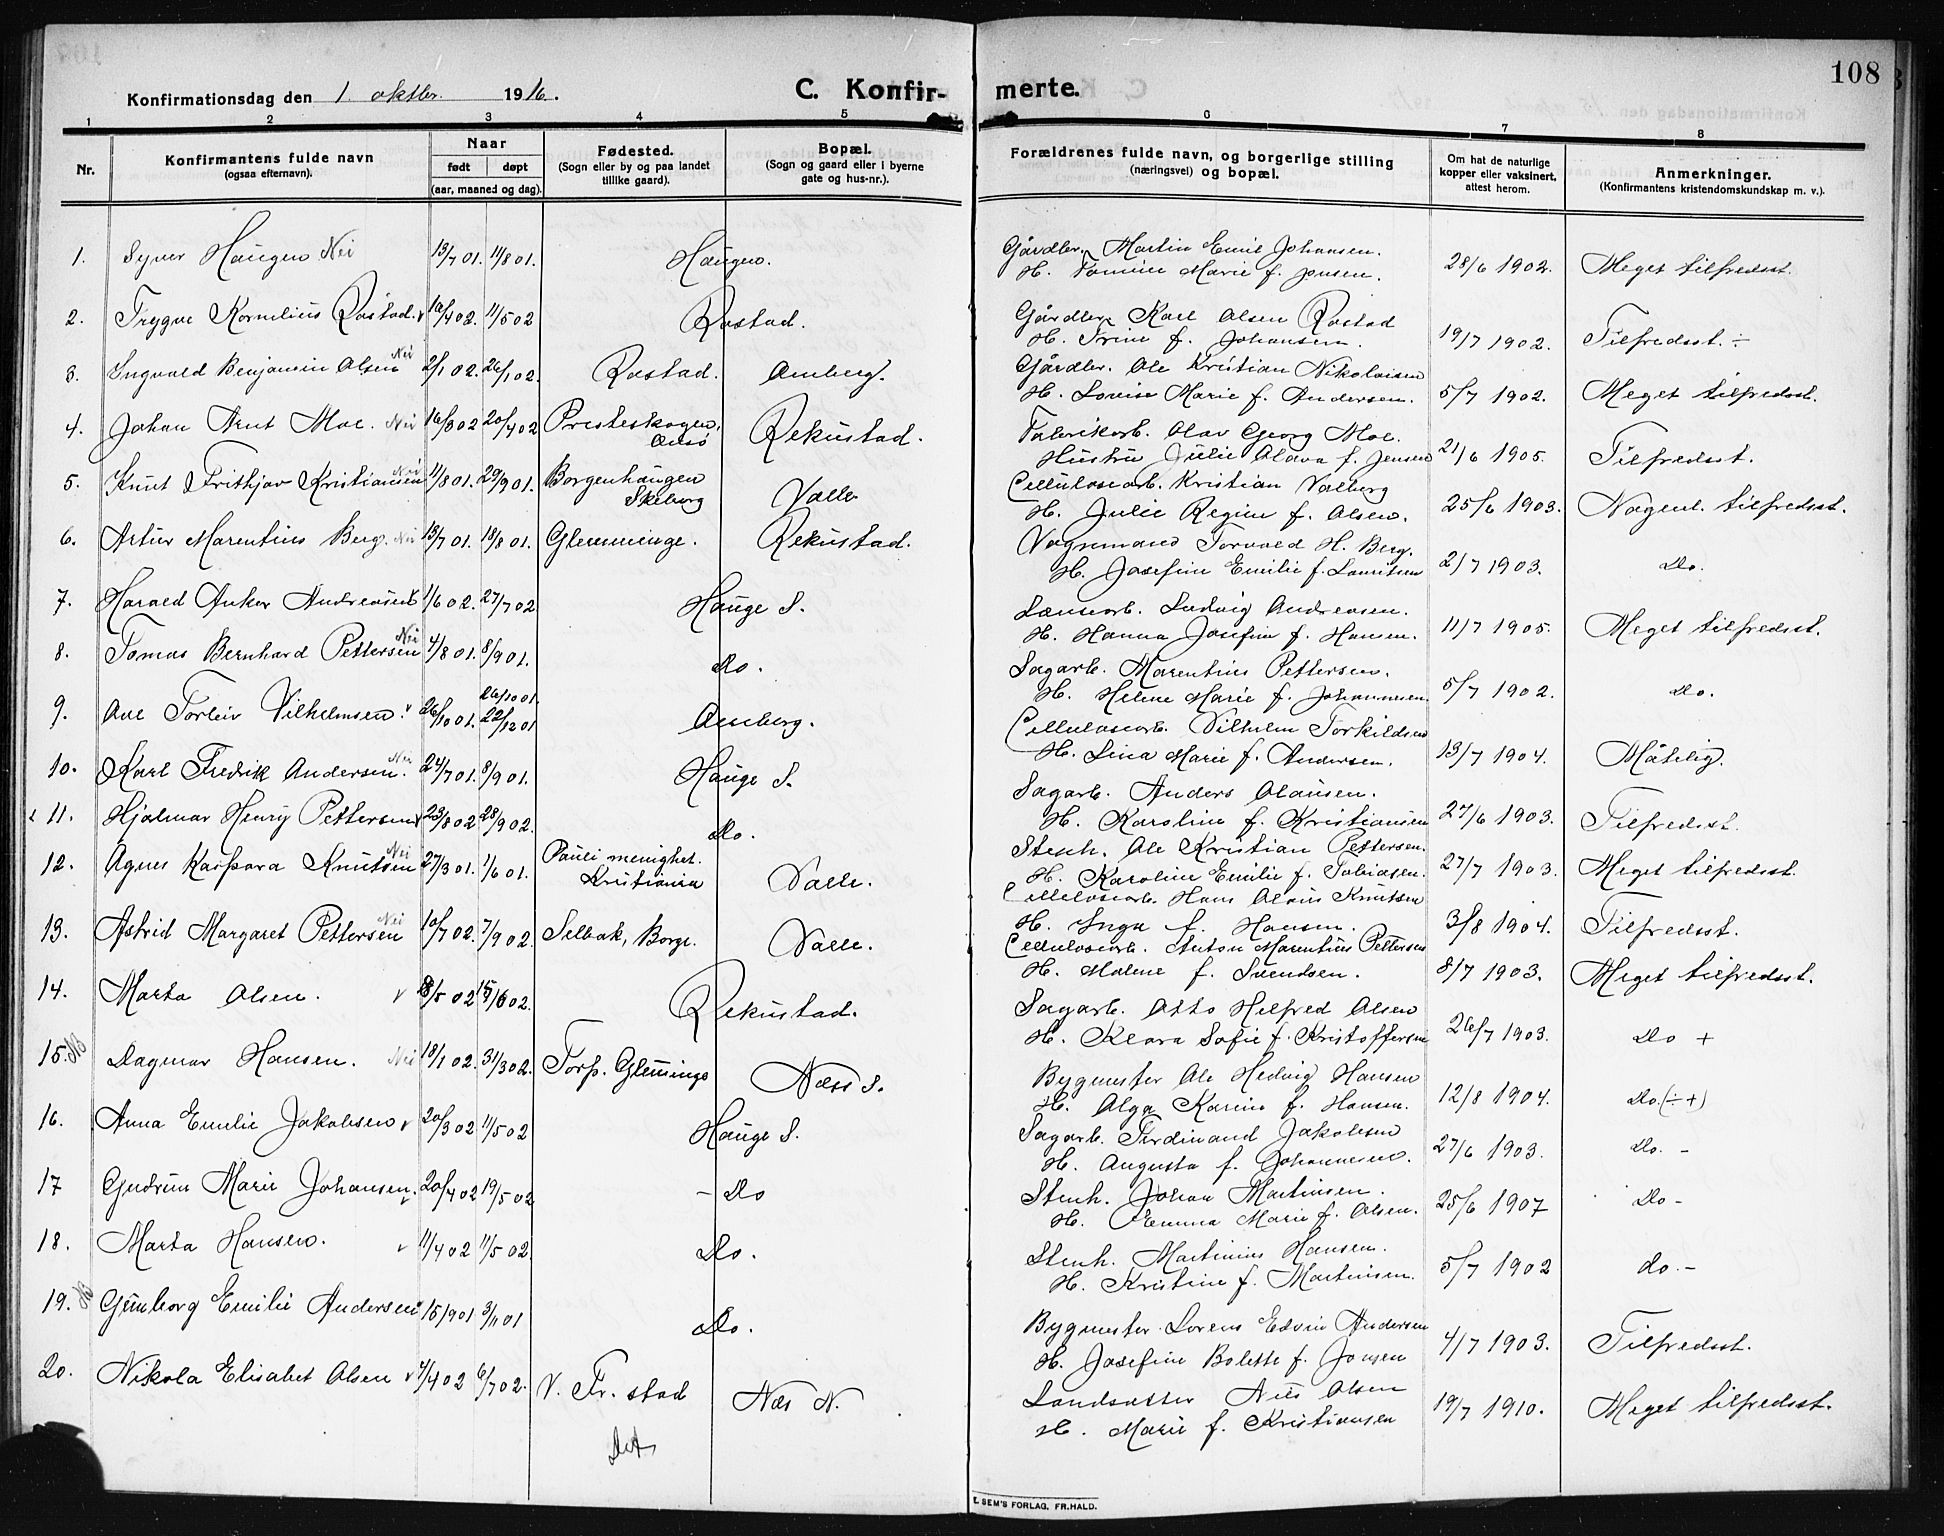 108
Konfirmationsdag den 1 oktbr. 1916.
C. Konfir-merte.
1 2 3 4 5 6 7 8
Nr.
Konfirmantens fulde navn
(ogsaa efternavn).
Naar
født døpt
(aar, maaned og dag).
Fødested.
(Sogn eller by og paa landet
tillike gaard).
Bopæl.
(Sogn og gaard eller i byerne
gate og hus-nr.).
Forældrenes fulde navn, og borgerlige stilling
(næringsvei) og bopæl.
Om hat de naturlige
kopper eller vaksinert,
attest herom.
Anmerkninger.
(Konfirmantens kristendomskundskap m. v.).
1. Syver Haugen Nei 13/7 01. 11/8 01. Haugen. Gårdbr. Martin Emil Johansen.
H. Tomine Marie f. Jensen. 28/6 1902. Meget tilfredsst.
2. Trygve Kornelius Rostad. v 16/4 02. 11/5 02 Rostad. Gårdbr. Karl Olsen Rostad
H. Trine f. Johansen. 19/7 1902. Tilfredsst. ÷
3. Ingvald Benjamin Olsen Nei 2/1 02. 26/1 02. Rostad. Amberg. Gårdbr. Ole Kristian Nikolaisen
H. Lovise Marie f. Andersen. 5/7 1902. Meget tilfredsst.
4. Johan Arnt Moe. Nei 16/3 02 20/4 02 Presteskogen, Onsø Rekustad. Fabrikarb. Olav Georg Moe.
Hustru Julie Olava f. Jensen 21/6 1905. Tilfredsst.
5. Knut Frithjov Kristiansen Nei 11/8 01. 29/9 01. Borgenhaugen Skeberg Valle Cellulosearb. Kristian Valberg
H. Julie Regine f. Olsen. 25/6 1903. Nogenl. tilfredsst.
6. Artur Marentius Berg. Nei 13/7 01. 18/8 01. Glemminge. Rekustad. Vognmand Torvald H. Berg.
H. Josefine Emilie f. Lauritsen 2/7 1903. Do.
7. Harald Anker Andreassen v 1/6 02. 27/7 02 Hauge S. Lænsearb. Ludvig Andreasen.
H. Hanna Josefine f. Hansen. 11/7 1905. Meget tilfredsst.
8. Tomas Bernhard Pettersen Nei 4/8 01. 8/9 01. Do. Sagarb. Marentius Pettersen.
H. Helene Marie f. Johannesen 5/7 1902. Do.
9. Ole Torleiv Vilhelmsen. v 26/10 01. 26/10 01 22/12 01 Amberg. Cellulosearb. Vilhelm Torkildsen
H. Lina Marie f. Andersen. 13/7 1904. Måtelig.
10. Karl Fredrik Andersen. Nei 24/7 01. 8/9 01. Hauge S. Sagarb. Anders Olausen.
H. Karoline f. Kristiansen 27/6 1903. Tilfredsst.
11. Hjalmar Henry Pettersen v 23/8 02 28/9 02. Do. Stenh. Ole Kristian Pettersen.
H. Karoline Emilie f. Tobiasen. 27/7 1903. Meget tilfredsst.
12. Agnes Kaspara Knutsen Nei 27/3 01. 1/6 01. Pauli menighet. Kristiania Valle. Cellulosearb. Hans Olaus Knutsen
H. Inga f. Hansen. 3/8 1904. Tilfredsst.
13. Astrid Margaret Pettersen Nei 10/7 02. 7/9 02. Selbak, Borge. Valle. Cellulosearb. Anton Marentius Pettersen
H. Malene f. Svendsen. 8/7 1903. Meget tilfredsst.
14. Marta Olsen. v 8/5 02 15/6 02. Rekustad. Sagarb. Otto Hilfred Olsen
H. Klara Sofie f. Kristoffersen 26/7 1903. Do +
15. Dagmar Hansen. Nei 18/1 02. 31/3 02. Torp. Glemminge Næss S. Bygmester Ole Hedvig Hansen
H. Olga Karine f. Hansen. 12/8 1904. Do. (÷+)
16. Anna Emilie Jakobsen v 20/3 02 11/5 02 Hauge S. Sagarb. Ferdinand Jakobsen
H. Augusta f. Johannesen. 27/6 1903. Do. -
17 Gudrun Marie Johansen. v 20/4 02 19/5 02 - Do Stenh. Johan Martinsen.
H. Emma Marie f. Olsen. 25/6 1907 Do -
18. Marta Hansen. v 11/4 02 11/5 02 Do. Stenh. Martinius Hansen.
H. Kristine f. Martinsen. 5/7 1902 do. -
19. Gunborg Emilie Andersen 15/9 01 3/11 01 Do. Bygmester Lorens Edvin Andersen
H. Josefine Bolette f. Jonsen 4/7 1903. Tilfredsst.
20. Nikola Elisabet Olsen v 4/4 02 6/7 02. V. Fr. stad Næs N. Landsatter Nils Olsen
H. Marie f. Kristiansen 19/7 1910. Meget tilfredsst.
E. SEM'S FORLAG, FR.HALD.